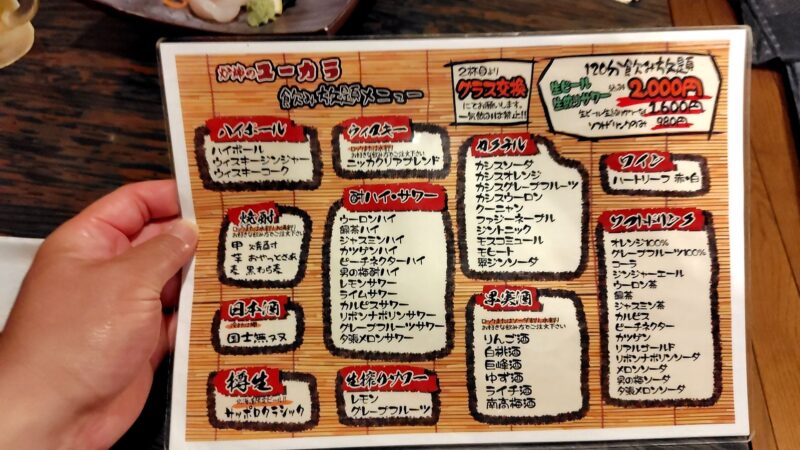 炉端のユーカラ
飲み放題メニュー
2杯目より
グラス交換
にてお願いします。
一気飲みは禁止!!
120分飲み放題
生ビール
生搾りサワー
2,000円
1,600円
ソフトドリンクのみ 980円
ハイボール
ハイボール
ウィスキージンジャー
ウィスキーコーク
ウィスキー
お好きな飲み方でご注文下さい
ニッカクリアブレンド
カクテル
カシスソーダ
カシスオレンジ
カシスグレープフルーツ
カシスウーロン
クーニャン
ファジーネーブル
ジントニック
モスコミュール
モヒート
翠ジンソーダ
ワイン
ハートリーフ 赤・白
焼酎
お好きな飲み方でご注文下さい
甲 焼酎
芋 おやっとさぁ
麦 黒わら麦
酎ハイ・サワー
ウーロンハイ
緑茶ハイ
ジャスミンハイ
カツゲンハイ
ピーチネクターハイ
男の梅酎ハイ
レモンサワー
ライムサワー
カルピスサワー
リボンナポリンサワー
グレープフルーツサワー
夕張メロンサワー
ソフトドリンク
オレンジ100%
グレープフルーツ100%
コーラ
ジンジャーエール
ウーロン茶
緑茶
ジャスミン茶
カルピス
ピーチネクター
カツゲン
リアルゴールド
リボンナポリンソーダ
メロンソーダ
男の梅ソーダ
夕張メロンソーダ
日本酒
国士無双
果実酒
ロックまたはソーダ割り・水割り
お好きな飲み方でご注文下さい
りんご酒
白桃酒
巨峰酒
ゆず酒
ライチ酒
南高梅酒
樽生
サッポロクラシック
生搾りサワー
レモン
グレープフルーツ